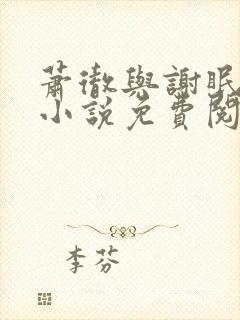 蕭徹與謝眠
小說免費閱
李芬